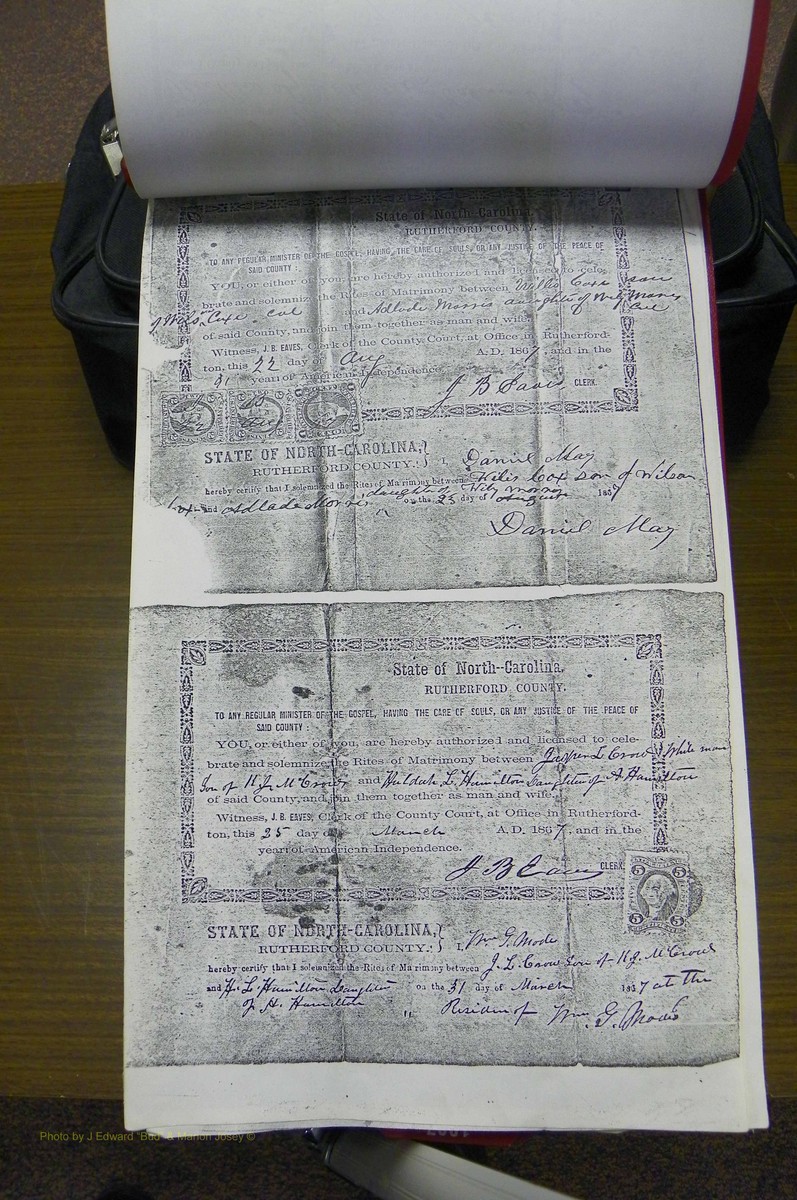 State of North-Carolina,
RUTHERFORD COUNTY.
TO ANY REGULAR MINISTER OF THE GOSPEL, HAVING THE CARE OF SOULS, OR ANY JUSTICE OF THE PEACE OF
SAID COUNTY:
YOU, or either of you, are hereby authorized and licensed to cele-
brate and solemnize the Rites of Matrimony between Willis Coxe son
of Wilson Coxe col and Adlade Morris daughter of Wily Morris
of said County, and join them together as man and wife. Col
Witness, J. B. EAVES, Clerk of the County Court, at Office in Rutherford-
ton, this 22 day of Aug A. D. 1867, and in the
91 year of American Independence.
J B Eaves CLERK.
STATE OF NORTH-CAROLINA,
RUTHERFORD COUNTY. I, Daniel May
hereby certify that I solemnized the Rites of Matrimony between Wilis Cox son of Wilson
Cox and Adlade Morris daughter of Wily Morris on the 25 day of August 1867
Daniel May
State of North-Carolina,
RUTHERFORD COUNTY.
TO ANY REGULAR MINISTER OF THE GOSPEL, HAVING THE CARE OF SOULS, OR ANY JUSTICE OF THE PEACE OF
SAID COUNTY:
YOU, or either of you, are hereby authorized and licensed to cele-
brate and solemnize the Rites of Matrimony between L Crow White man
Son of H. J. McCrow and Huldah L. Hamilton Daughter of A Hamilton
of said County, and join them together as man and wife.
Witness, J. B. EAVES, Clerk of the County Court, at Office in Rutherford-
ton, this 25 day of March A. D. 1867, and in the
year of American Independence.
J B Eaves CLERK
5 5
5 5
STATE OF NORTH-CAROLINA,
RUTHERFORD COUNTY. I, Wm G. Mode
hereby certify that I solemnized the Rites of Matrimony between J. L. Crow Son of H. J. McCrow
and H. L. Hamilton Daughter on the 31 day of March 1867 at the
of A. Hamilton " Residen of Wm. G. Mode
Photo by J Edward "Bud" & Marion Josey ©